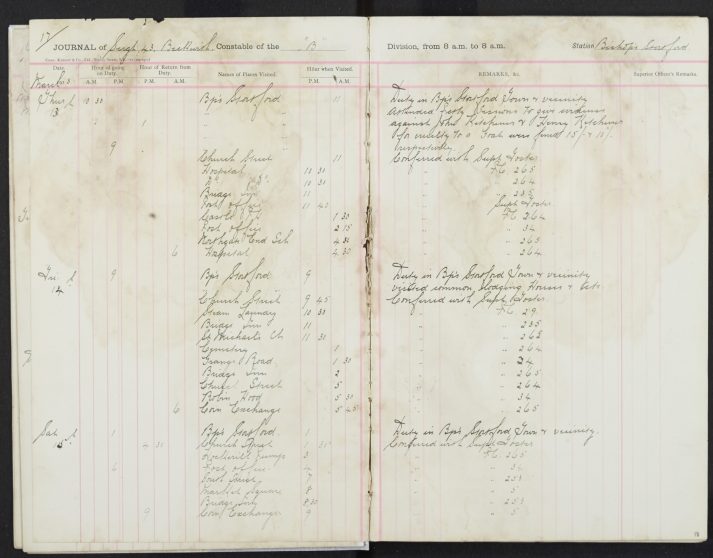 17/
JOURNAL of Sergt 43. Beckwith. Constable of the "B" Division, from 8 a.m. to 8 a.m. Station Bishops Stortford
Date. Hour of going on Duty. Hour of Return from Duty. Names of Places Visited. Hour when Visited. REMARKS, &c. Superior Officer's Remarks.
A.M. P.M. P.M. A.M. P.M. A.M.
March
Thursd 10 30 Bp's Stortford 11 Duty in Bp's Stortford Town & vicinity
13 Attended Petty Sessions to give evidence
1 against John Ketchener & Henry Ketchener
for cruelty to a Goat were fined 15/- &
9 respectively
Church Street 11 Conferred with Supt Foster
Hospital 10 30 PC 265
10 30 264
Bridge Inn 11 235
Post office 11 40 Supt Foster
Castle 1 30 PC 264
Post office 2 15 34
Northgate End Sch 4 30 265
6 Hospital 4 30 264
Frid 9 Bp's Stortford 9 Duty in Bp's Stortford Town & vicinity
14 visited common Lodging Houses &
Church Street 9 45 Conferred with Supt Foster
Steam Laundry 10 30 PC 29
Bridge Inn 11 235
St Michaels Ch 11 30 265
Cemetery 1 264
Grange Road 1 30 34
Bridge Inn 2 265
Church Street 5 264
Robin Hood 5 30 34
6 Corn Exchange 5 45 265
Sat 1 Bp's Stortford 1 Duty in Bp's Stortford Town & vicinity.
15 4 30 Church Street 1 Conferred with Supt Foster
3 PC 265
6 Post office 4 34
7 259
Market Square 8 5
Bridge Inn 8 30 259
9 Corn Exchange 9 5